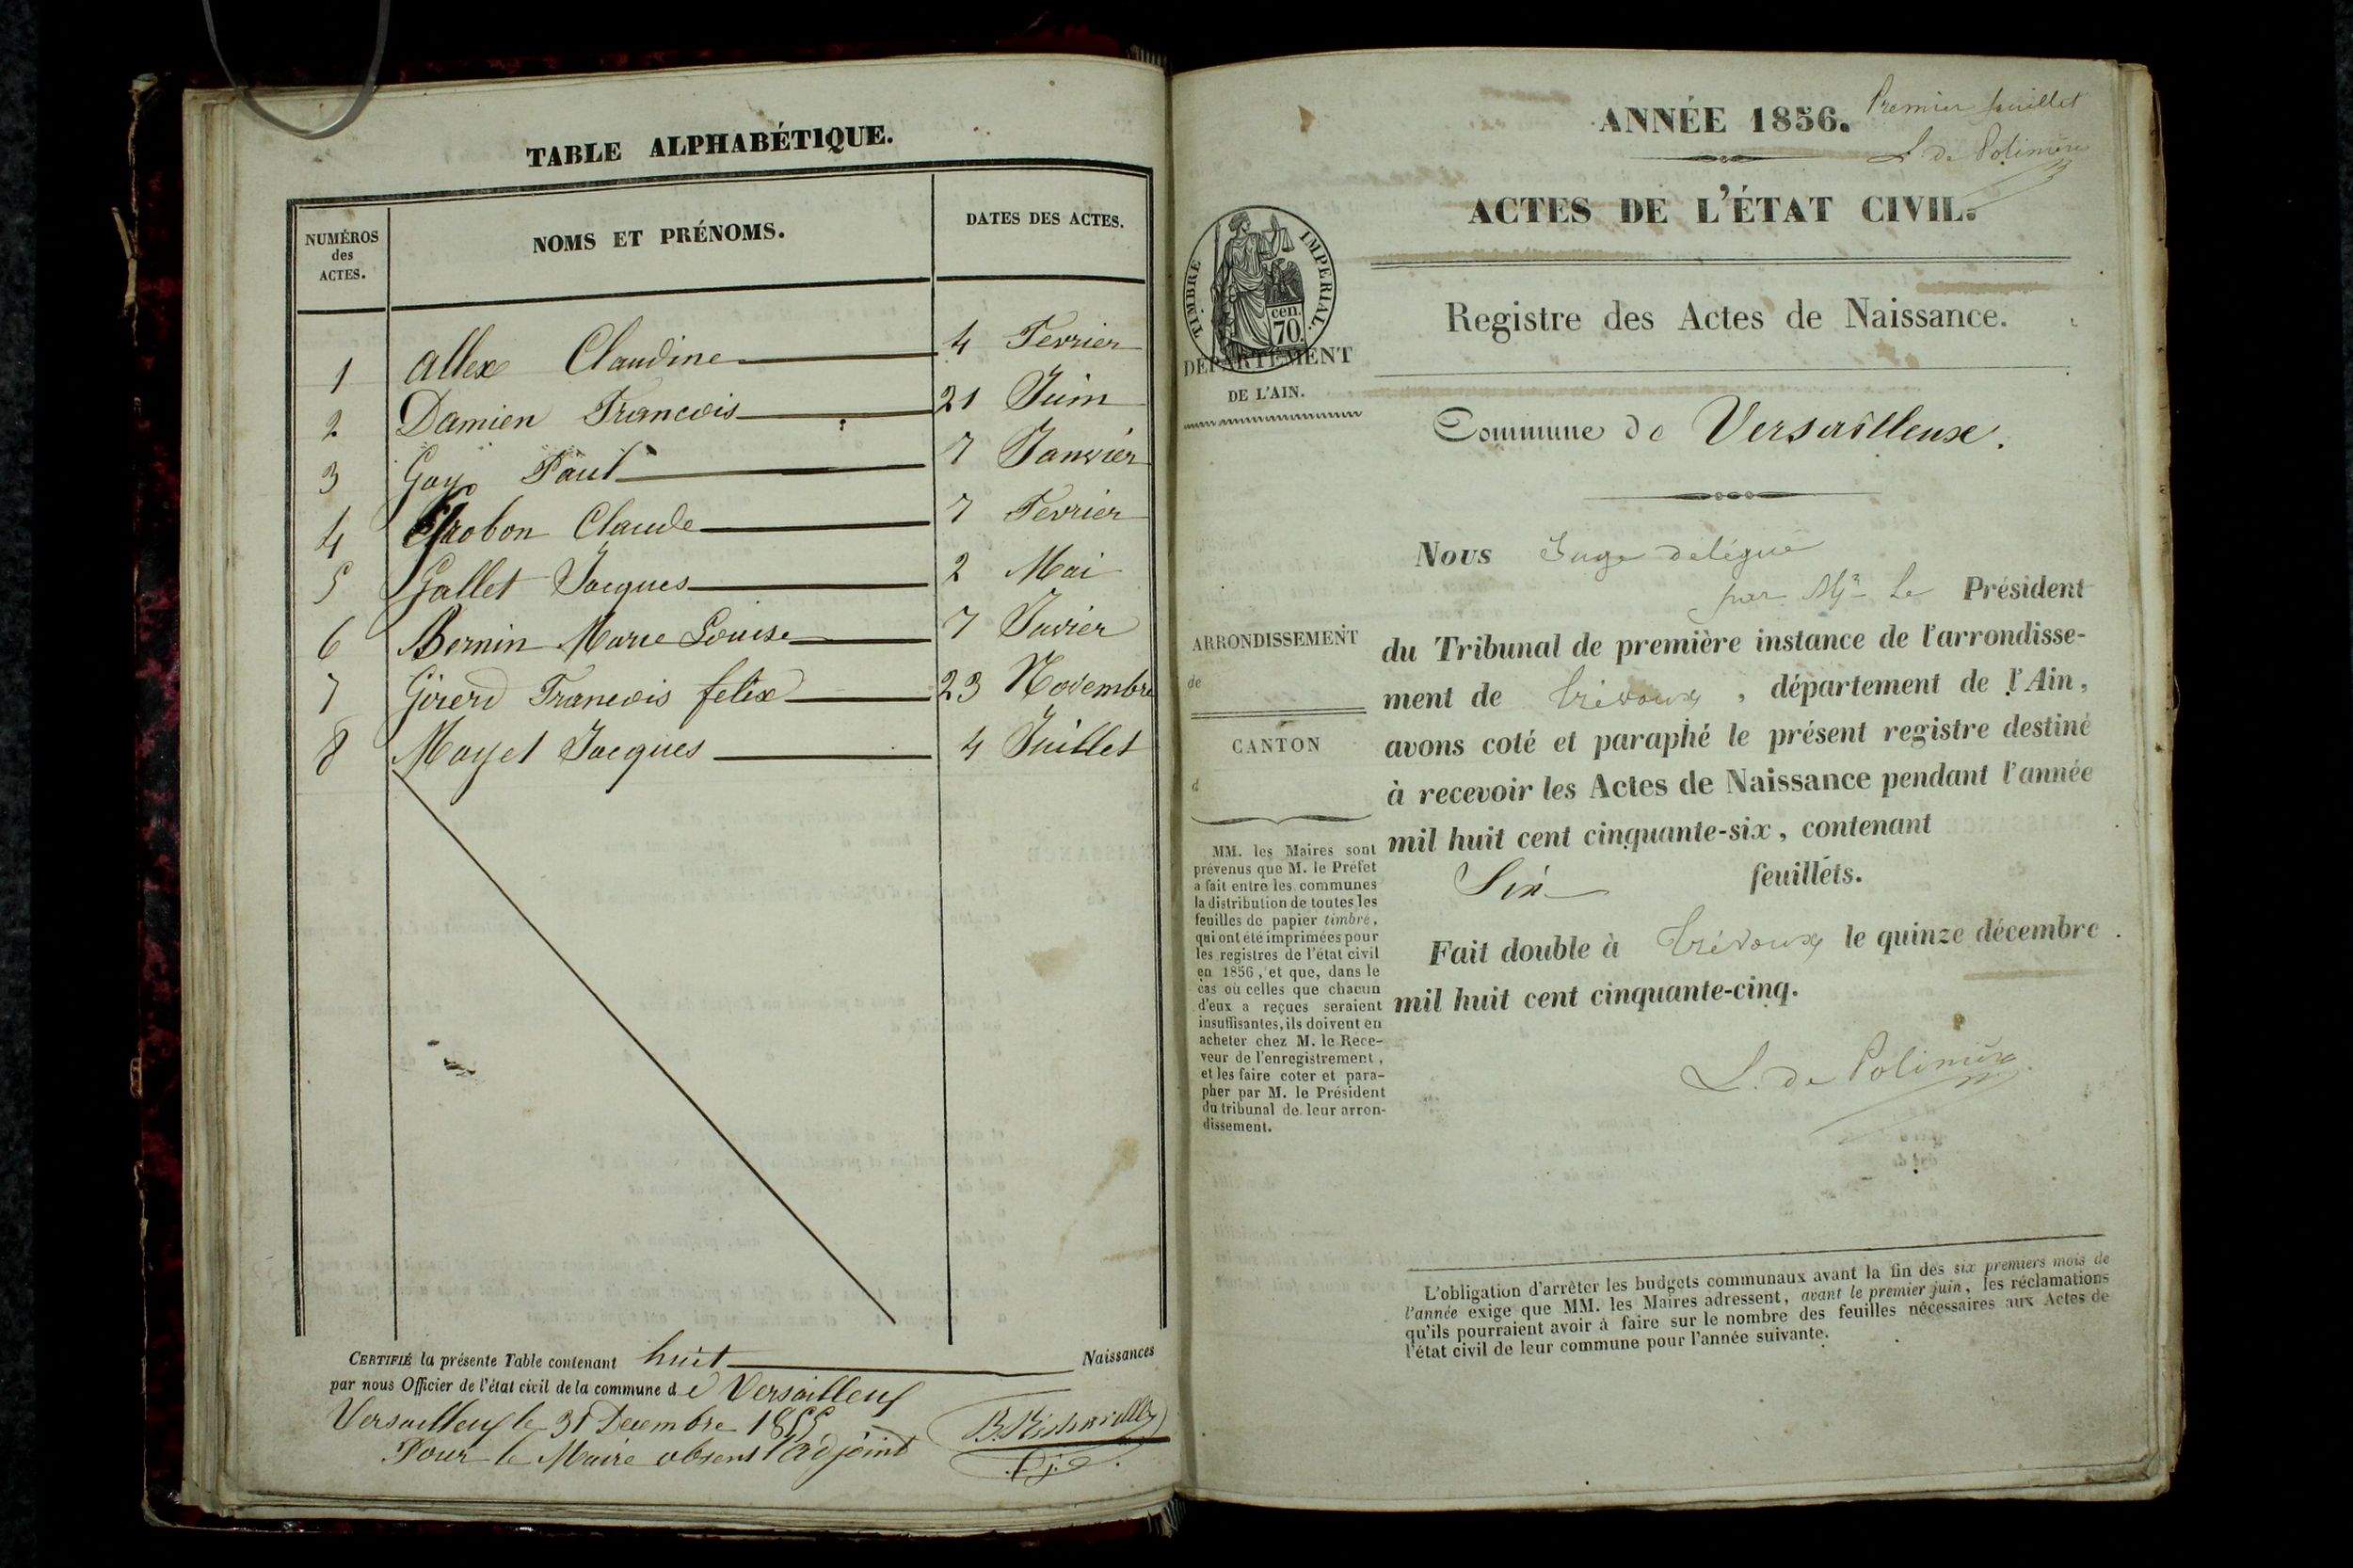 TABLE ALPHABÉTIQUE.
NUMÉROS des ACTES.
NOMS ET PRÉNOMS.
DATES DES ACTES.
1 Allex Claudine 4 Fevrier
2 Damien Francois 21 Juin
3 Gay Paul 7 Janvier
4 Grobon Claude 7 Fevrier
5 Gallet Jacques 2 Mai
6 Bernin Marie Louise 7
7 Girerd Francois felix 23 Novembre
8 Mayet Jacques 4 Juillet
CERTIFIÉ la présente Table contenant huit Naissances
par nous Officier de l'état civil de la commune de Versailleux
Versailleux le 31 Decembre 1855
Pour le Maire absent l'adjoint
ANNÉE 1856.
Premier feuillet
L. de Polinière
ACTES DE L'ÉTAT CIVIL.
TIMBRE IMPERIAL.
cen. 70.
DÉPARTEMENT
DE L'AIN.
Registre des Actes de Naissance.
Commune de Versailleux.
Nous Juge délégué
par Mr Le Président
du Tribunal de première instance de l'arrondisse-
ment de Trévoux, département de l'Ain,
avons coté et paraphé le présent registre destiné
à recevoir les Actes de Naissance pendant l'année
mil huit cent cinquante-six, contenant
Six feuillets.
Fait double à Trévoux le quinze décembre
mil huit cent cinquante-cinq.
L. de Polinière
ARRONDISSEMENT
de
CANTON
d
MM. les Maires sont
prévenus que M. le Préfet
a fait entre les communes
la distribution de toutes les
feuilles de papier timbré,
qui ont été imprimées pour
les registres de l'état civil
en 1856, et que, dans le
cas où celles que chacun
d'eux a reçues seraient
insuffisantes, ils doivent en
acheter chez M. le Rece-
veur de l'enregistrement,
et les faire coter et para-
pher par M. le Président
du tribunal de leur arron-
dissement.
L'obligation d'arrêter les budgets communaux avant la fin des six premiers mois de
l'année exige que MM. les Maires adressent, avant le premier juin, les réclamations
qu'ils pourraient avoir à faire sur le nombre des feuilles nécessaires aux Actes de
l'état civil de leur commune pour l'année suivante.